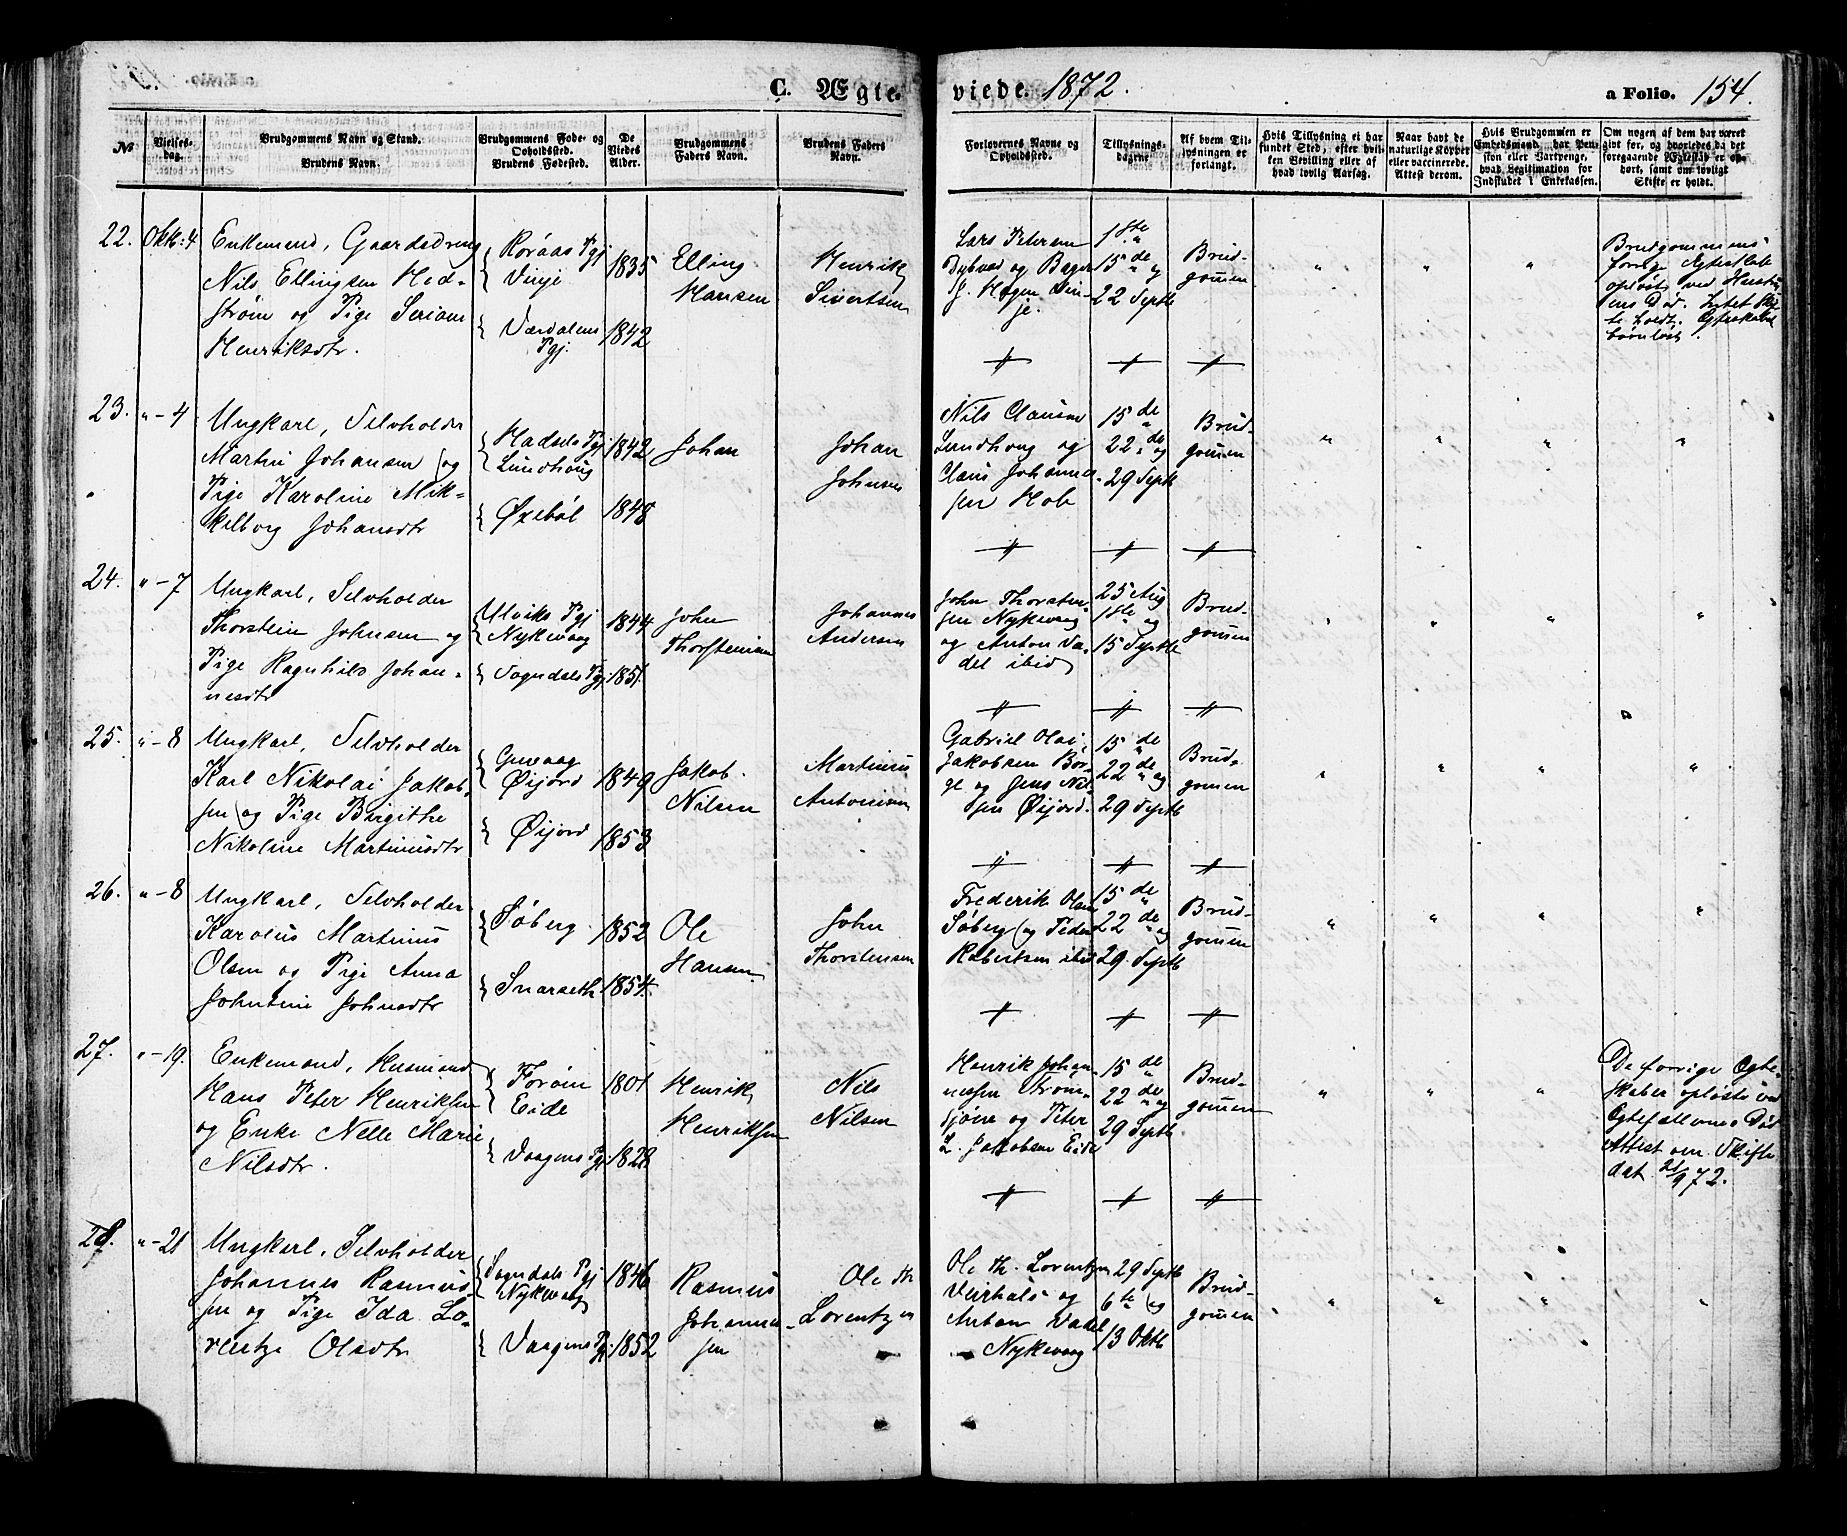 C. Ægteviede. 1872. a Folio. 154.
No
Vielses-
dag.
Brudgommens Navn og Stand.
Brudens Navn.
Brudgommens Føde- og
Opholdssted.
Brudens Fødested.
De
Viedes
Alder.
Brudgommens
Faders Navn.
Brudens Faders
Navn.
Forlovernes Navne og
Opholdssted.
Tillysnings-
dagene.
Af hvem Til-
lysningen er
forlangt.
Hvis Tillysning ei har
fundet Sted, efter hvil-
ken Bevilling eller af
hvad lovlig Aarsag.
Naar havt de
naturlige Kopper
eller vaccinerede.
Attest derom.
Hvis Brudgommen er
Embedsmand, har Pen-
sion eller Vartpenge,
hvad Legitimation for
Indskudet i Enkekassen.
Om nogen af dem har været
givt før, og hvorledes da det
foregaaende Ægteskab er op-
hørt, samt om lovligt
Skifte er holdt.
22. Oktb: 4
Enkemand, Gaardsdreng
Nils Ellingsen Hed-
strøm og Pige Seriane
Henriksdtr.
Røraas Pgj
Vinje
Værdalens
Pgj.
1835
1842
Elling
Hansen
Henrik
Sivertsen
Lars Petersen
Dybvad og Bager
H. Hagen Vin-
je.
1ste
15de og
22 Septb
Brud-
gomen
Brudgommens
forrige Egteskab
opløst ved Hustru
ens Død. Intet Skif
te holdt. Egteskabet
barnløst.
23. " - 4
Ungkarl, Selvholder
Martin Johansen og
Pige Karoline Mik-
kelborg Johansdtr
Hadsels Pgj
Lundhaug
Øxebøl
1842
1848
Johan
Johan
Johnsen
Nils Clausen
Lundhaug og
Claus Johannes-
sen Hob
15de
22de og
29 Septb
Brud-
gomen
24. " - 7
Ungkarl, Selvholder
Thorstein Johnsen og
Pige Ragnhild Johan-
nesdtr
Ulviks Pgj
Nykevaag
Sogndals Pgj
1844
1851.
John
Thorsteinsen
Johannes
Andersen
John Thorsten-
sen Nykevaag
og Anton Va-
del ibid
25 Aug
1ste og
15 Septb
Brud-
gomen
25. " - 8
Ungkarl, Selvholder
Karl Nikolai Jakob-
sen og Pige Birgithe
Nikoline Martinusdtr
Øijord
Øijord
1849
1853
Jakob
Nilsen
Martinus
Antonisen
Gabriel Olai
Jakobsen Bor-
ge og Jens Nil-
sen Øijord.
15de
22de og
29 Septb
Brud-
gomen
26. " - 8
Ungkarl, Selvholder
Karolus Martinus
Olsen og Pige Anna
Johntine Johnsdtr
Søberg
Snarseth
1852
1854.
Ole
Hansen
John
Thorstensen
Frederik Olsen
Søberg og Peder
Robertsen ibid
15de
22de og
29 Septb
Brud-
gomen
27. " - 19.
Enkemand, Husmand
Hans Peter Henriksen
og Enke Nelle Marie
Nilsdtr.
Forøen
Eide
Vaagens Pgj
1801
1828
Henrik
Henriksen
Nils
Nilsen
Henrik Johan-
nessen Strøm-
sjøne og Peter
L. Jakobsen Eide
15de
22de og
29 Septb
Brud-
gomen
De forrige Egte-
skaber opløste ved
Egtefællernes Død
Attest om Skifte
dat. 21/9 72.
28. " - 21
Ungkarl, Selvholder
Johannes Rasmus-
sen og Pige Ida Lo-
rentze Olsdtr
Sogndals Pgj
Nykevaag
Vaagens Pgj
1846
1852
Rasmus
Johannes-
sen
Ole Th
Lorentzen
Ole Th. Lorentzen
Veirhals og
Anton Vadel
Nykevaag
29 Septb
6te og
13 Oktb
Brud-
gomen